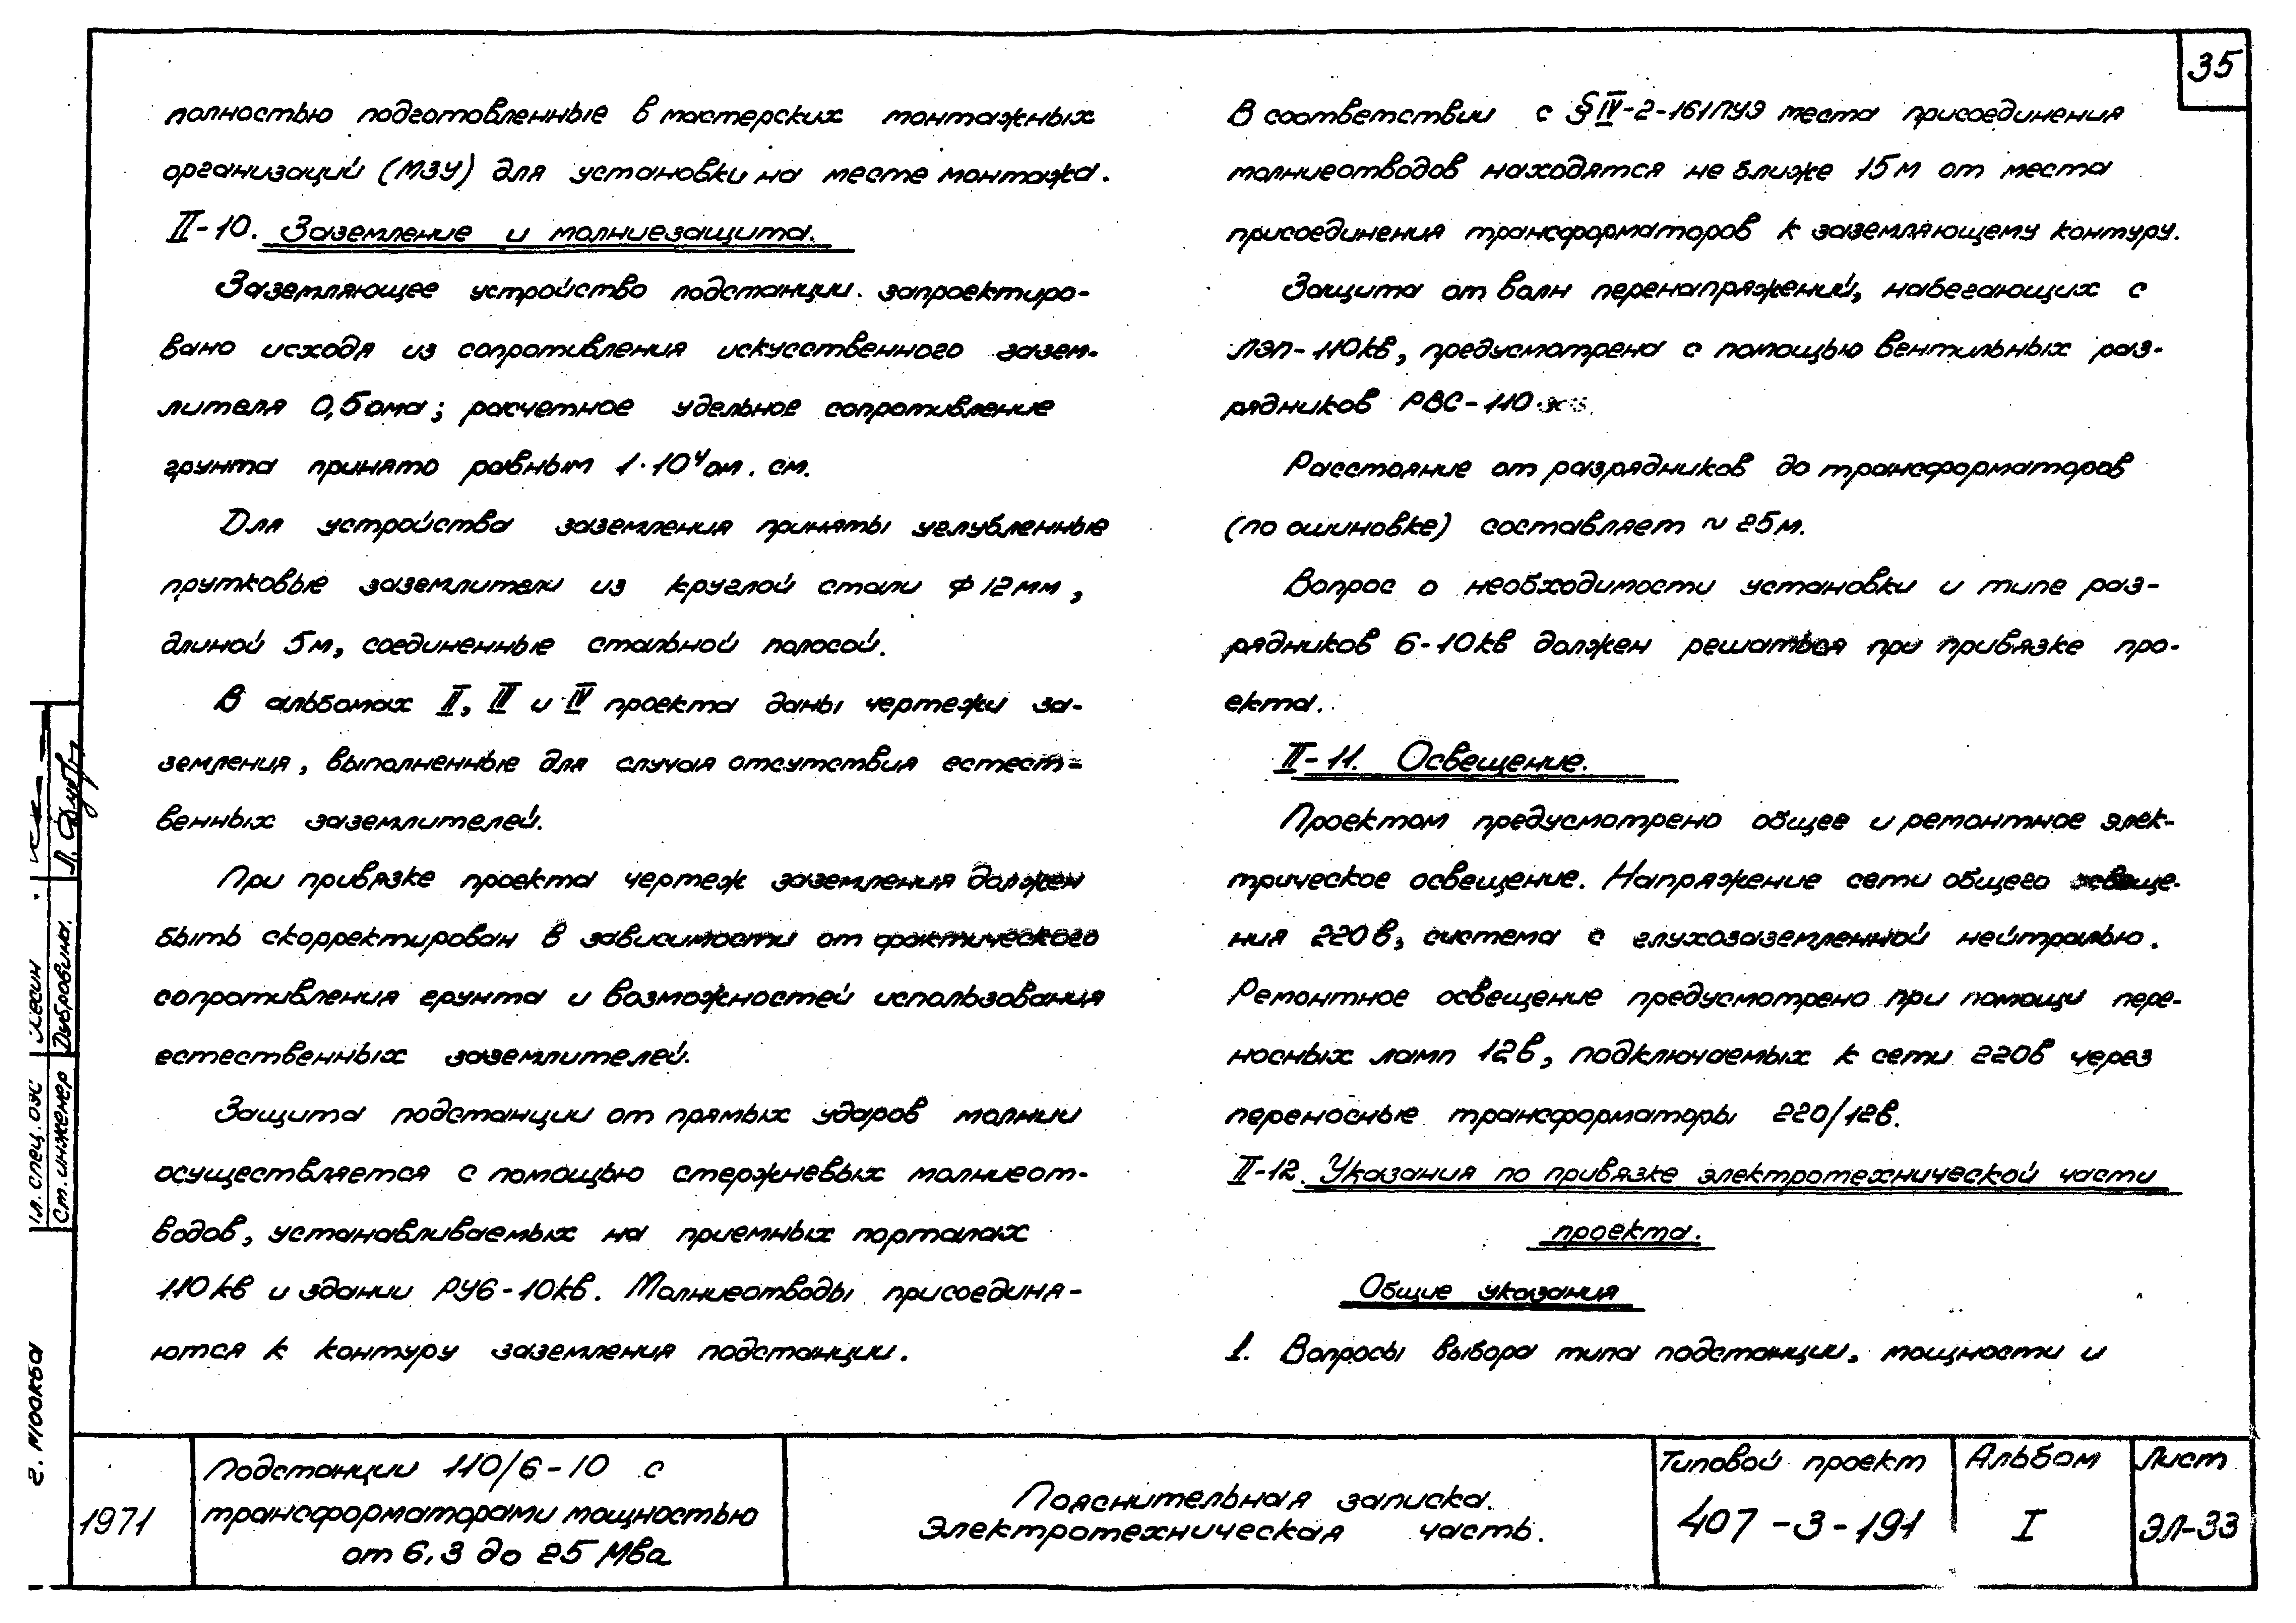 35
полностью подготовленные в мастерских монтажных
организаций (МЗУ) для установки на месте монтажа.
II-10. Заземление и молниезащита.
Заземляющее устройство подстанции запроектиро-
вано исходя из сопротивления искусственного зазем-
лителя 0,5 ома; расчетное удельное сопротивление
грунта принято равным 1·10⁴ ом. см.
Для устройства заземления приняты углубленные
прутковые заземлители из круглой стали ф 12 мм,
длиной 5 м, соединенные стальной полосой.
В альбомах II, III и IV проекта даны чертежи за-
земления, выполненные для случая отсутствия естест-
венных заземлителей.
При привязке проекта чертеж заземления должен
быть скорректирован в зависимости от фактического
сопротивления грунта и возможностей использования
естественных заземлителей.
Защита подстанции от прямых ударов молнии
осуществляется с помощью стержневых молниеот-
водов, устанавливаемых на приемных порталах
110 кв и здании РУ6-10кв. Молниеотводы присоединя-
ются к контуру заземления подстанции.
В соответствии с §IV-2-161 ПУЭ места присоединения
молниеотводов находятся не ближе 15 м от места
присоединения трансформаторов к заземляющему контуру.
Защита от волн перенапряжений, набегающих с
ЛЭП-110кв, предусмотрена с помощью вентильных раз-
рядников РВС-110
Расстояние от разрядников до трансформаторов
(по ошиновке) составляет ~ 25 м.
Вопрос о необходимости установки и типе раз-
рядников 6-10кв должен решаться при привязке про-
екта.
II-11. Освещение.
Проектом предусмотрено общее и ремонтное элек-
трическое освещение. Напряжение сети общего освеще-
ния 220 в, система с глухозаземленной нейтралью.
Ремонтное освещение предусмотрено при помощи пере-
носных ламп 12в, подключаемых к сети 220в через
переносные трансформаторы 220/12в.
II-12. Указания по привязке электротехнической части
проекта.
Общие указания
1. Вопросы выбора типа подстанции, мощности и
Гл. спец. ОЭС Хесин
Ст. инженер Дубровина
г. Москва
1971
Подстанции 110/6-10 с
трансформаторами мощностью
от 6,3 до 25 Мва
Пояснительная записка.
Электротехническая часть.
Типовой проект
407-3-191
Альбом
I
Лист
ЭЛ-33